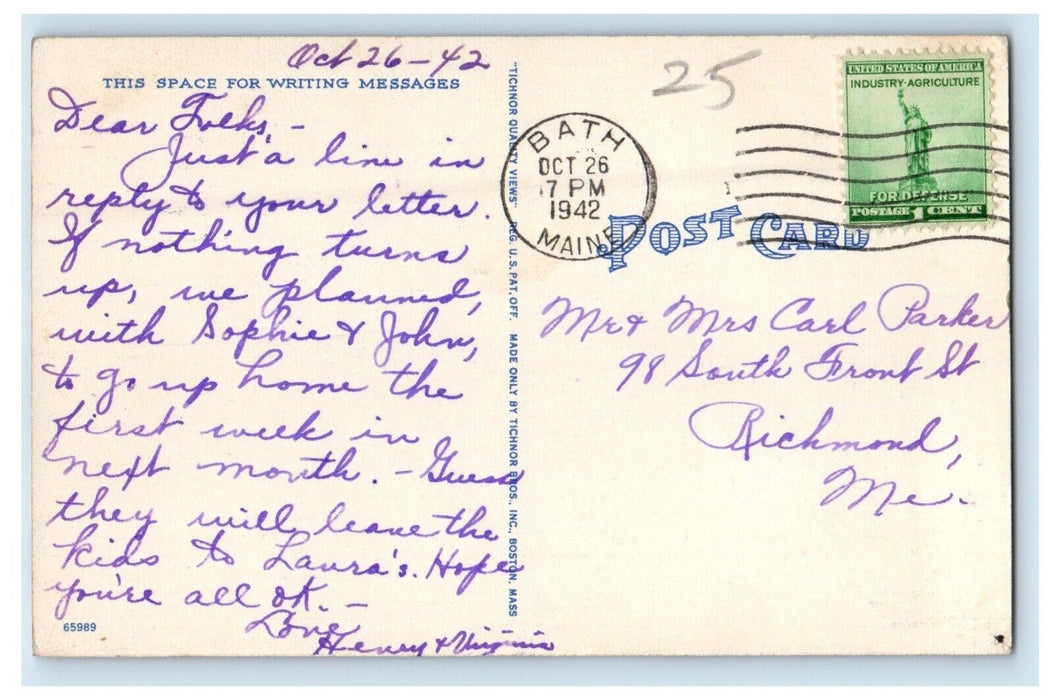 Oct 26-42
THIS SPACE FOR WRITING MESSAGES
Dear Folks, -
Just a line in
reply to your letter.
If nothing turns
up, we planned,
with Sophie & John,
to go up home the
first week in
next month. - Guess
they will leave the
kids to Laura's. Hope
you're all ok. -
Love
Henry & Virginia
65989
"TICHNOR QUALITY VIEWS" REG. U.S. PAT. OFF. MADE ONLY BY TICHNOR BROS., INC., BOSTON, MASS
25
BATH
OCT 26
7 PM
1942
MAINE
UNITED STATES OF AMERICA
INDUSTRY-AGRICULTURE
FOR DEFENSE
POSTAGE 1 CENT
POST CARD
Mr & Mrs Carl Parker
98 South Front St
Richmond,
Me.